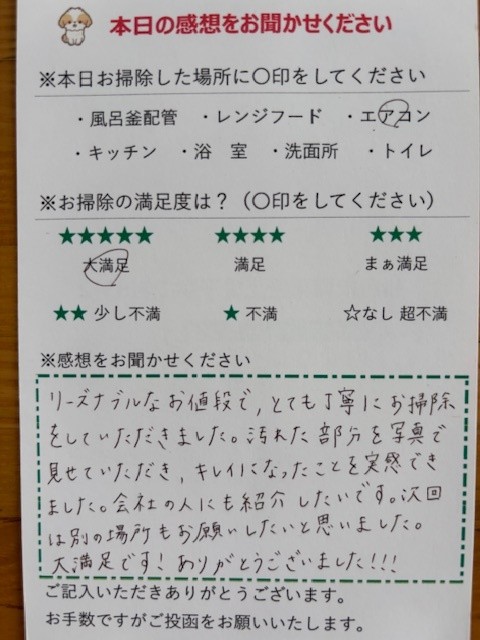 本日の感想をお聞かせください
※本日お掃除した場所に〇印をしてください
・風呂釜配管 ・レンジフード ・エアコン
・キッチン ・浴 室 ・洗面所 ・トイレ
※お掃除の満足度は？（〇印をしてください）
★★★★★ ★★★★ ★★★
大満足 満足 まぁ満足
★★ 少し不満 ★ 不満 ☆なし 超不満
※感想をお聞かせください
リーズナブルなお値段で、とても丁寧にお掃除
をしていただきました。汚れた部分を写真で
見せていただき、キレイになったことを実感でき
ました。会社の人にも紹介したいです。次回
は別の場所もお願いしたいと思いました。
大満足です！ありがとうございました！！！
ご記入いただきありがとうございます。
お手数ですがご投函をお願いいたします。